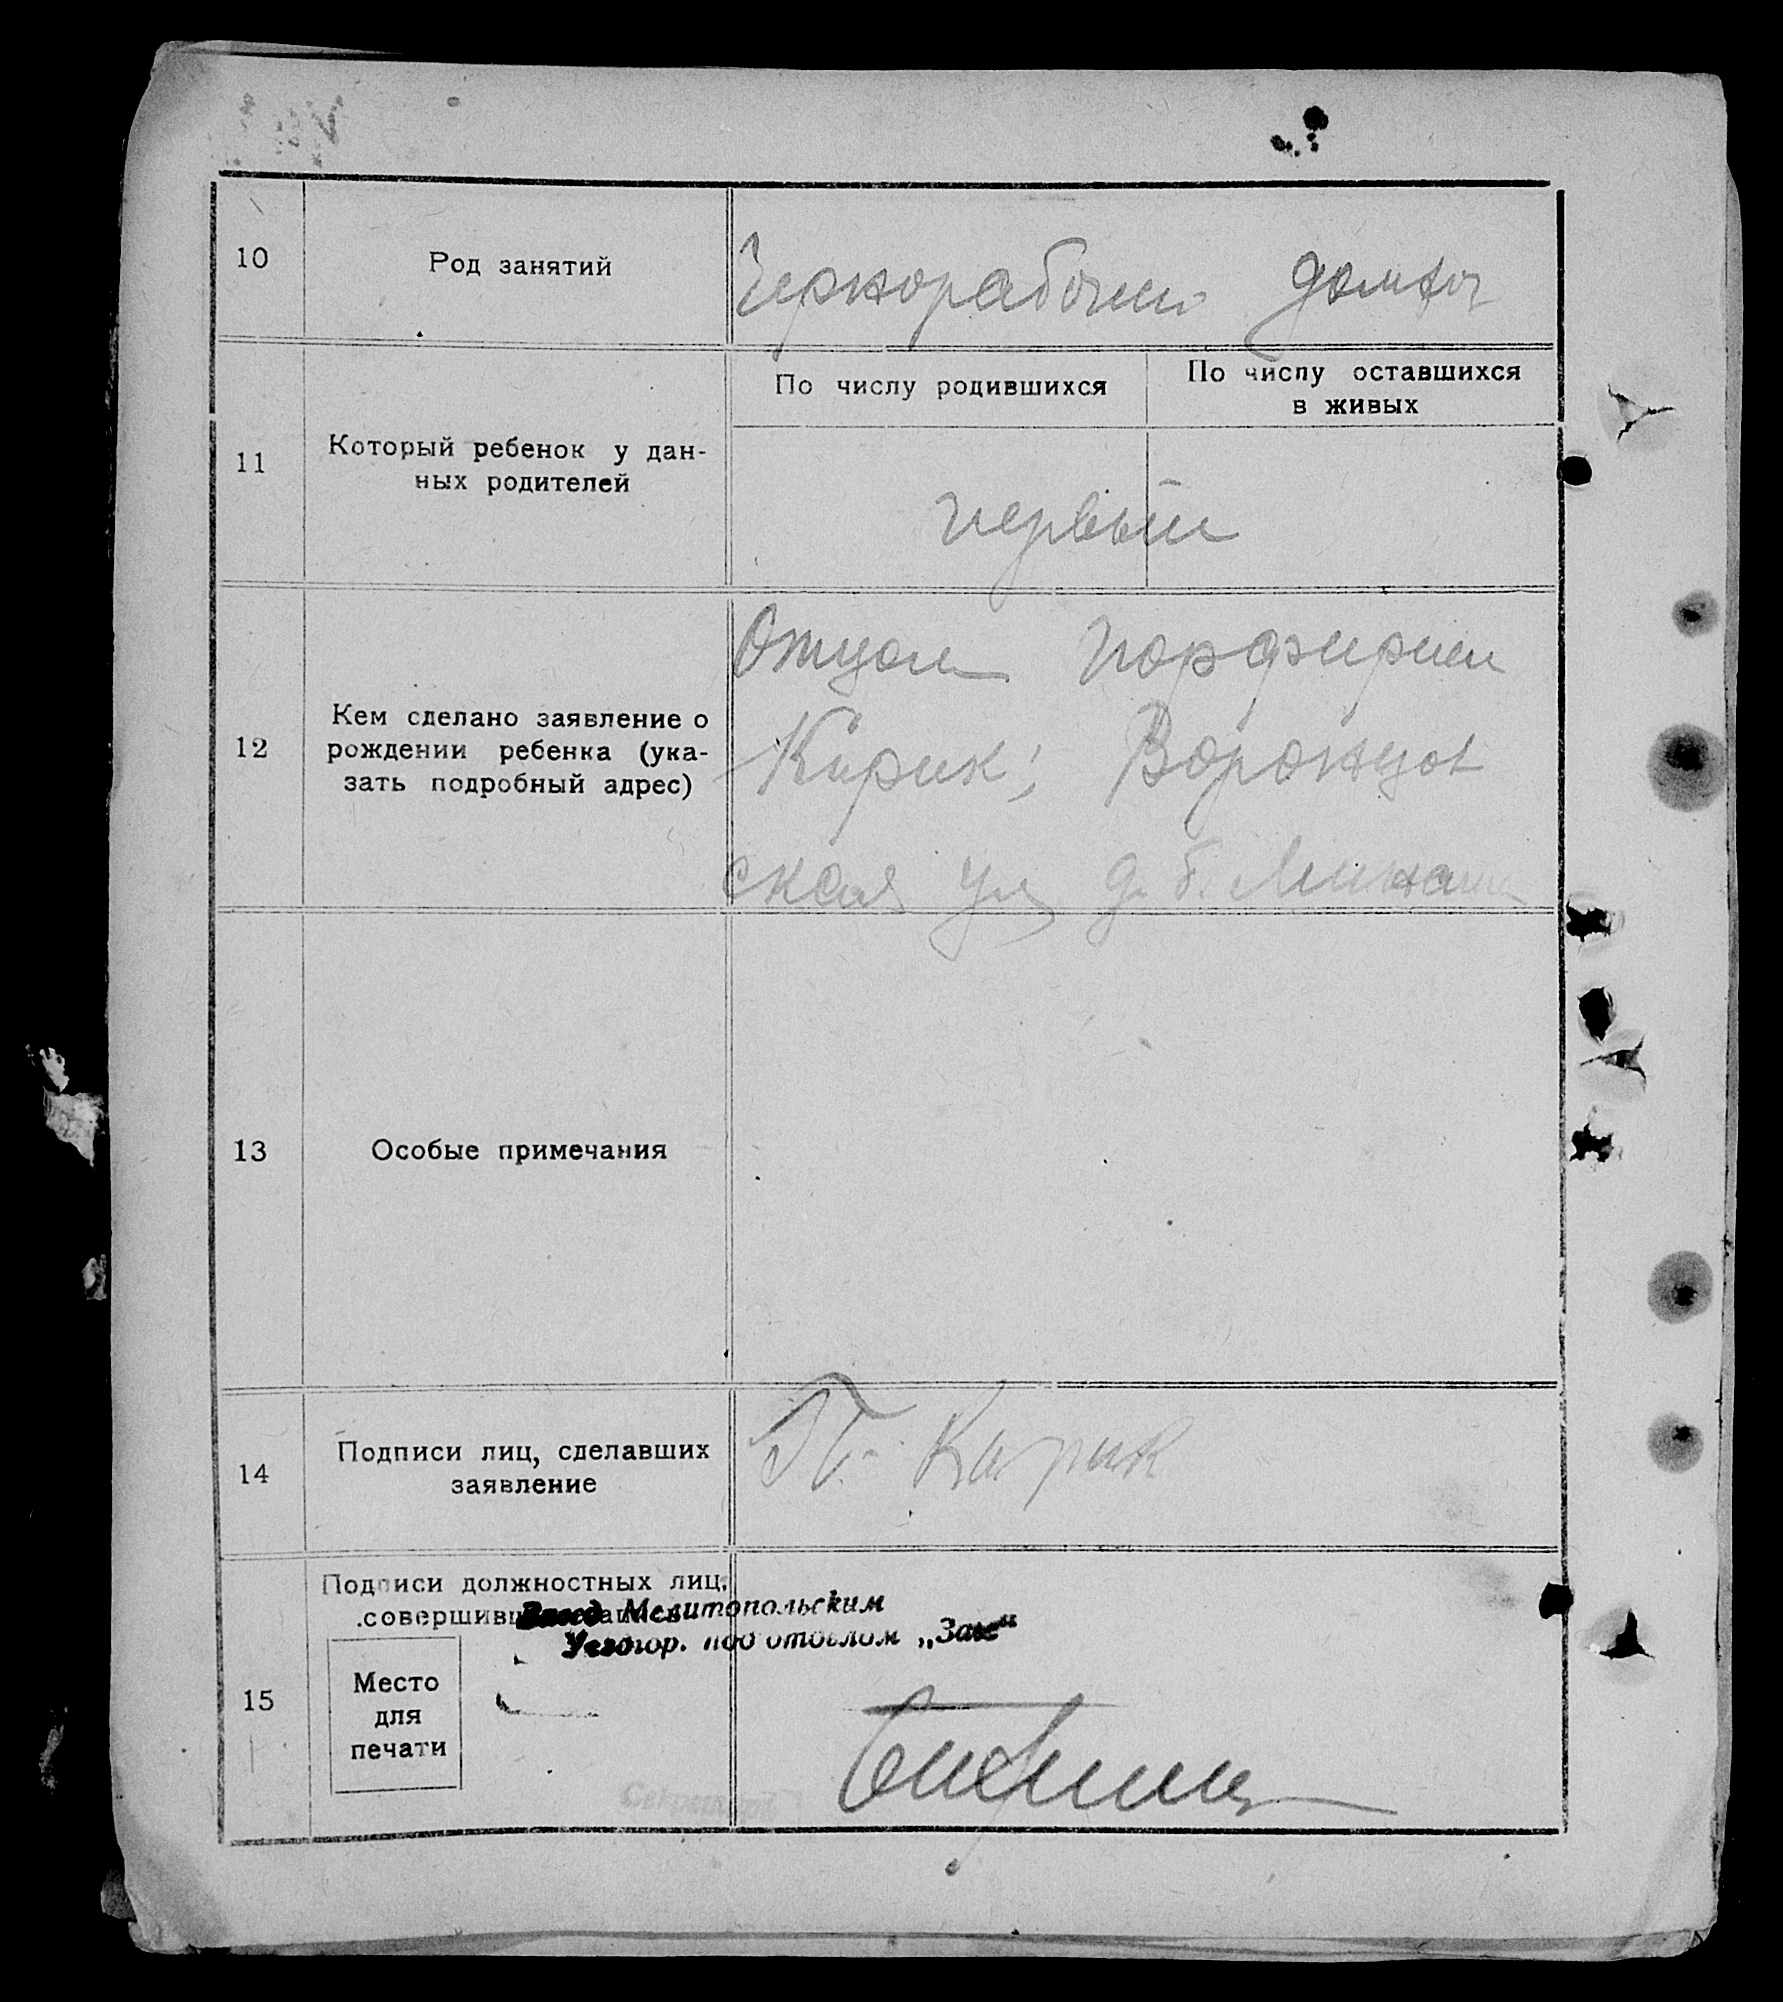 10
Род занятий
Чернорабочий домхоз
11
Который ребенок у дан-
ных родителей
По числу родившихся
По числу оставшихся
в живых
первый
12
Кем сделано заявление о
рождении ребенка (ука-
зать подробный адрес)
Отцом Порфирием
Кирик; Воронцов
ская ул д. б.
13
Особые примечания
14
Подписи лиц, сделавших
заявление
П. Кирик
15
Подписи должностных лиц,
Мелитопольским
под отделом „Загс“
Место
для
печати
Секретарь